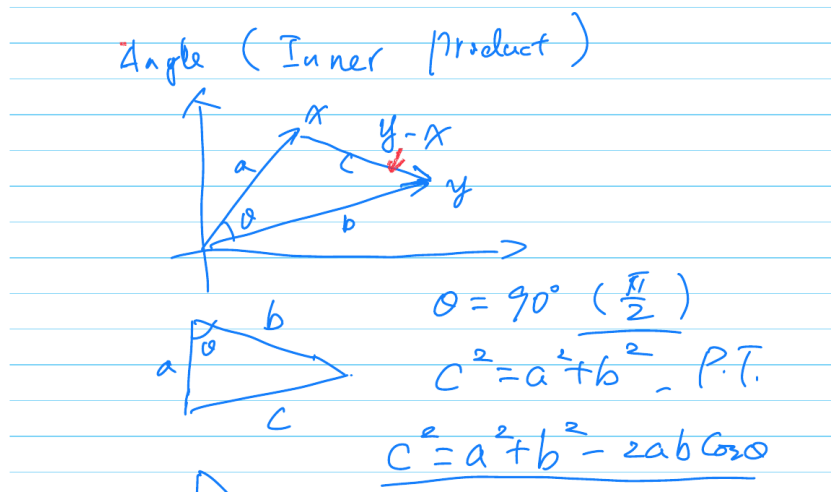 Angle ( Inner Product )
x
y - x
a
c
y
θ
b
θ = 90° ( π/2 )
b
θ
a
c² = a² + b² - P.T.
c
c² = a² + b² - 2ab Cosθ